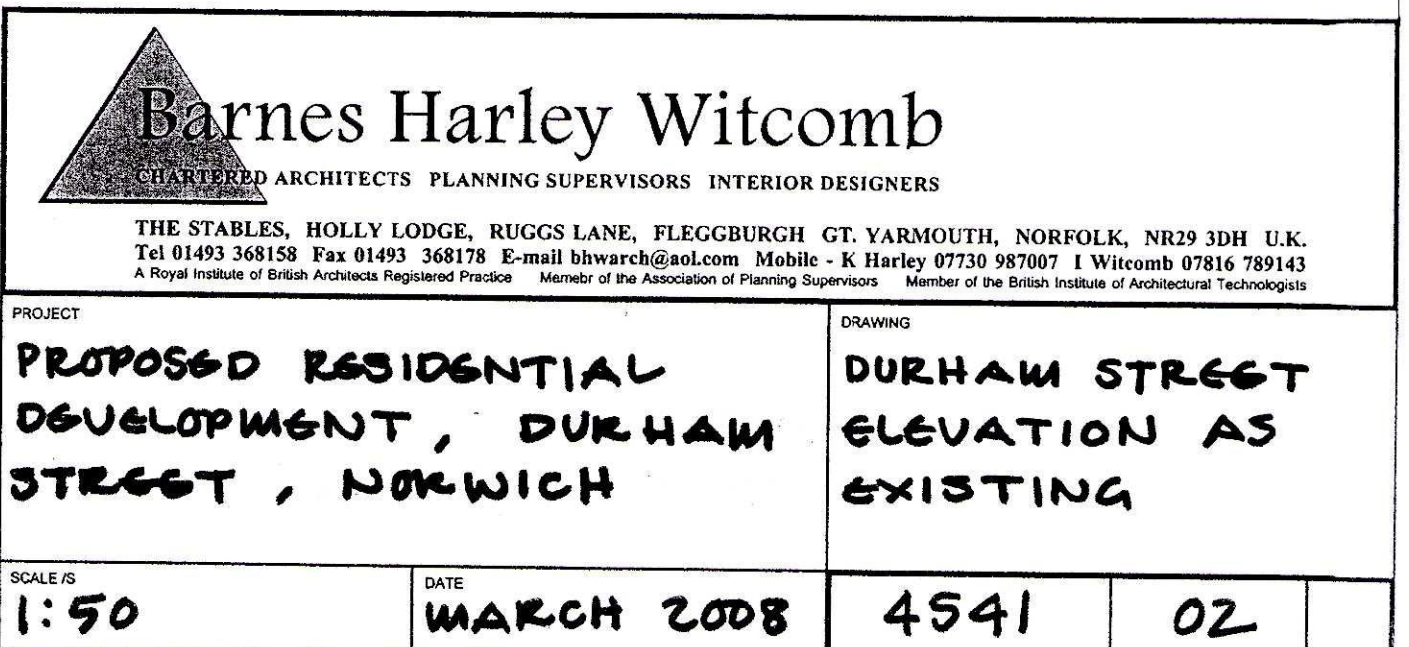 Barnes Harley Witcomb
CHARTERED ARCHITECTS PLANNING SUPERVISORS INTERIOR DESIGNERS
THE STABLES, HOLLY LODGE, RUGGS LANE, FLEGGBURGH GT. YARMOUTH, NORFOLK, NR29 3DH U.K.
Tel 01493 368158 Fax 01493 368178 E-mail bhwarch@aol.com Mobile - K Harley 07730 987007 I Witcomb 07816 789143
A Royal Institute of British Architects Registered Practice Memebr of the Association of Planning Supervisors Member of the British Institute of Architectural Technologists
PROJECT
PROPOSED RESIDENTIAL
DEVELOPMENT, DURHAM
STREET, NORWICH
DRAWING
DURHAM STREET
ELEVATION AS
EXISTING
SCALE /S
1:50
DATE
MARCH 2008
4541
02